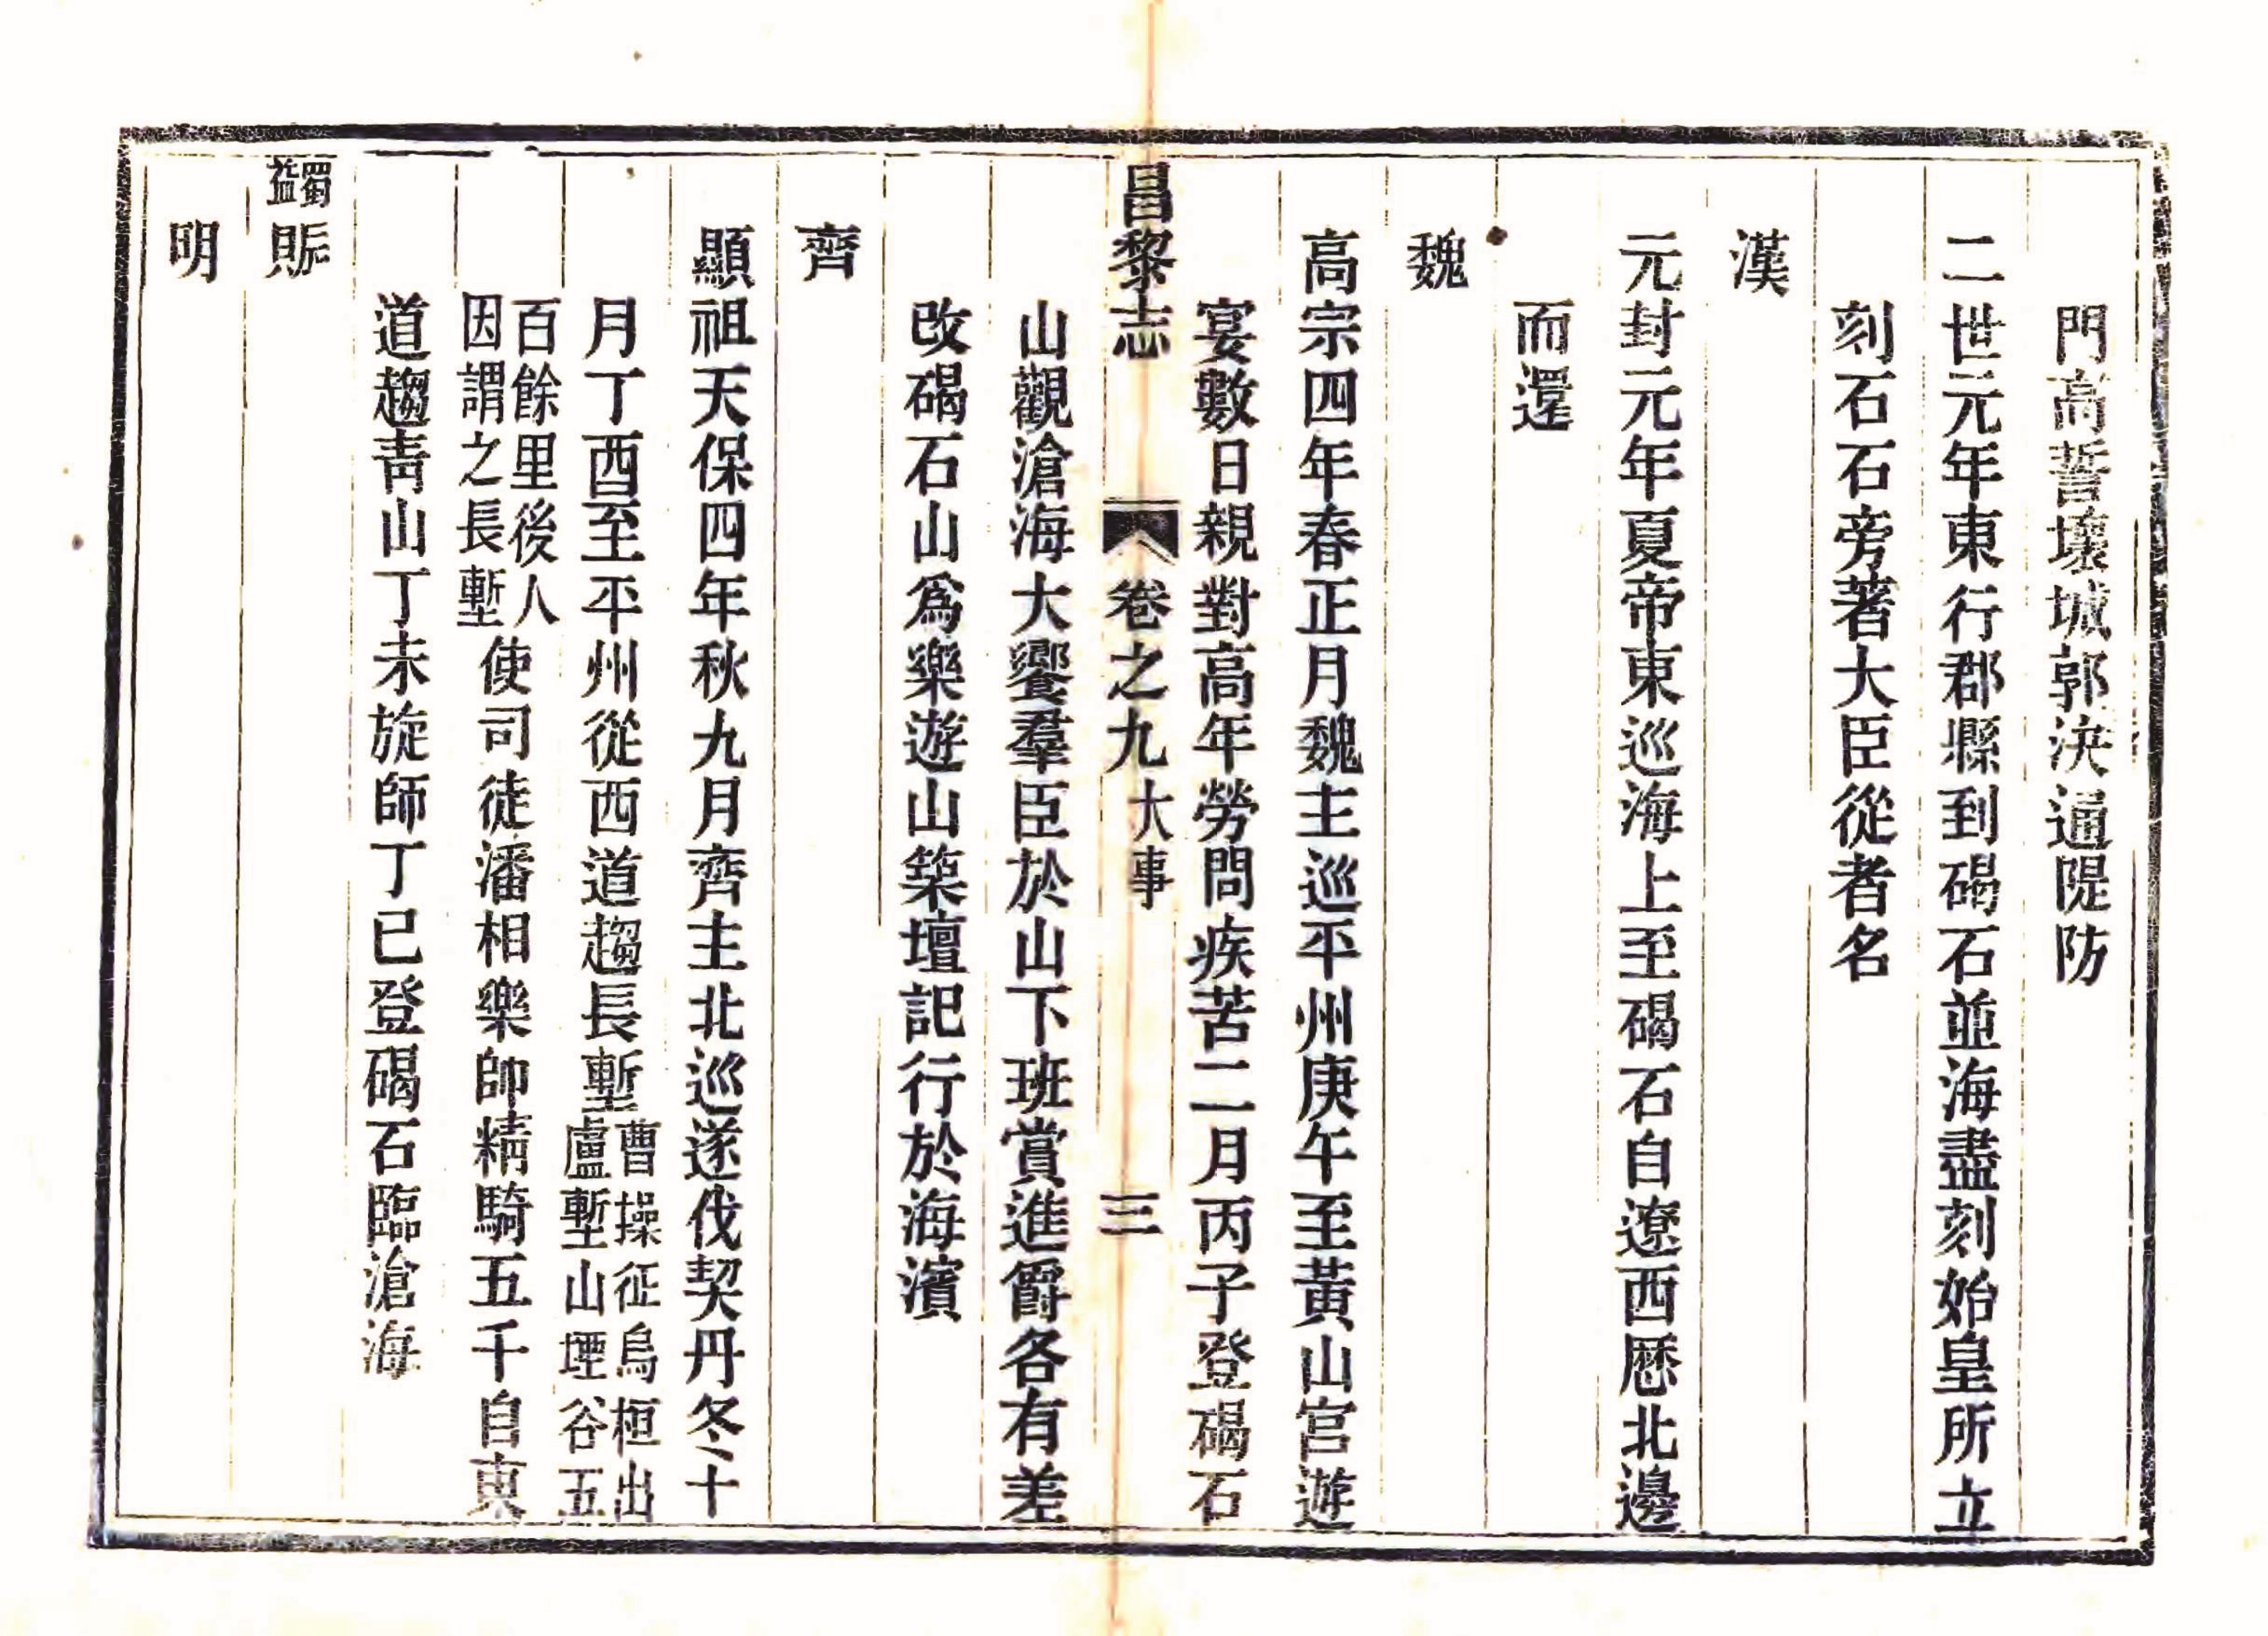 門高誓壞城郭決通隄防
二世元年東行郡縣到碣石並海盡刻始皇所立
刻石石旁著大臣從者名
漢
元封元年夏帝東巡海上至碣石自遼西歷北邊
而還
魏
高宗四年春正月魏主巡平州庚午至黃山宮遊
宴數日親對高年勞問疾苦二月丙子登碣石
昌黎志 卷之九 大事 三
山觀滄海大饗羣臣於山下班賞進爵各有差
改碣石山爲樂遊山築壇記行於海濱
齊
顯祖天保四年秋九月齊主北巡遂伐契丹冬十
月丁酉至平州從西道趨長塹曹操征烏桓出盧塹山堙谷五
百餘里後人因謂之長塹使司徒潘相樂帥精騎五千自東
道趨靑山丁未旋師丁巳登碣石臨滄海
蠲賑
明